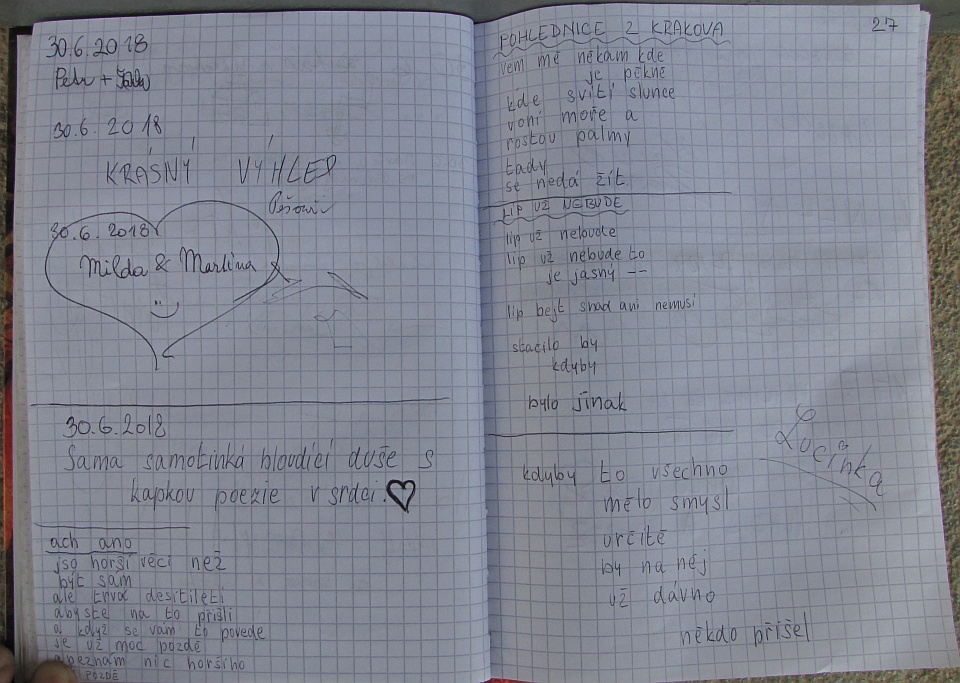 30.6.2018
Petr +
30.6.2018
KRÁSNÝ VÝHLED
30.6.2018
Milda & Martina
30.6.2018
Sama samotinká bloudící duše s
kapkou poezie v srdci.
ach ano
jso horší věci než
být sám
ale trvá desítiletí
abyste na to přišli
a když se vám to povede
je už moc pozdě
a neznám nic horšího
POZDĚ
27
POHLEDNICE Z KRAKOVA
vem mě někam kde
je pěkně
kde svítí slunce
voní moře a
rostou palmy
tady
se nedá žít
LIP UŽ NEBUDE
lip už nebude
lip už nebude to
je jasný --
lip bejt snad ani nemusí
stacilo by
kdyby
bylo jinak
kdyby to všechno
mělo smysl
určitě
by na něj
už dávno
někdo přišel
Lucinka